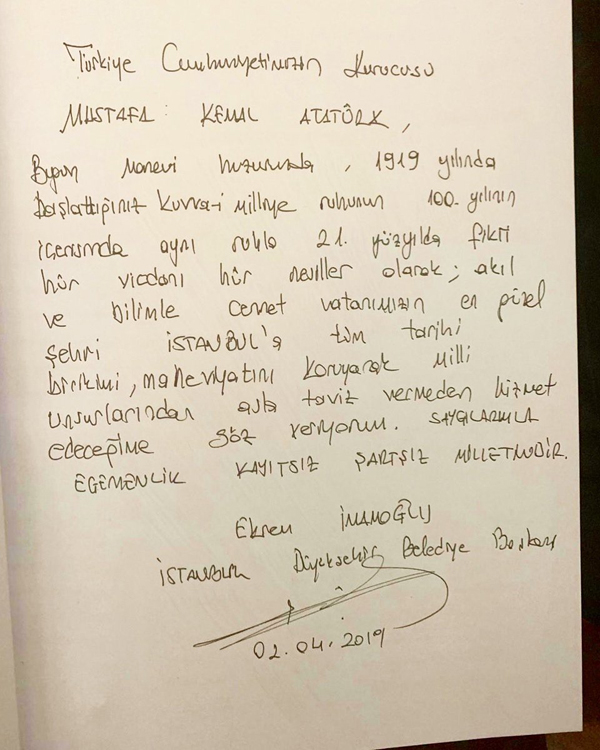 Türkiye Cumhuriyetimizin Kurucusu
MUSTAFA KEMAL ATATÜRK,
Bugün manevi huzurunuzda, 1919 yılında
başlattığınız Kuvva-i Milliye ruhunun 100. yılının
içerisinde aynı ruhla 21. yüzyılda fikri
hür vicdanı hür nesiller olarak; akıl
ve bilimle cennet vatanımızın en güzel
şehri İSTANBUL'a tüm tarihi
birikimi, maneviyatını koruyarak milli
unsurlarından asla taviz vermeden hizmet
edeceğime söz veriyorum. SAYGILARIMLA
EGEMENLİK KAYITSIZ ŞARTSIZ MİLLETİNDİR.
Ekrem İMAMOĞLU
İSTANBUL Büyükşehir Belediye Başkanı
02.04.2019